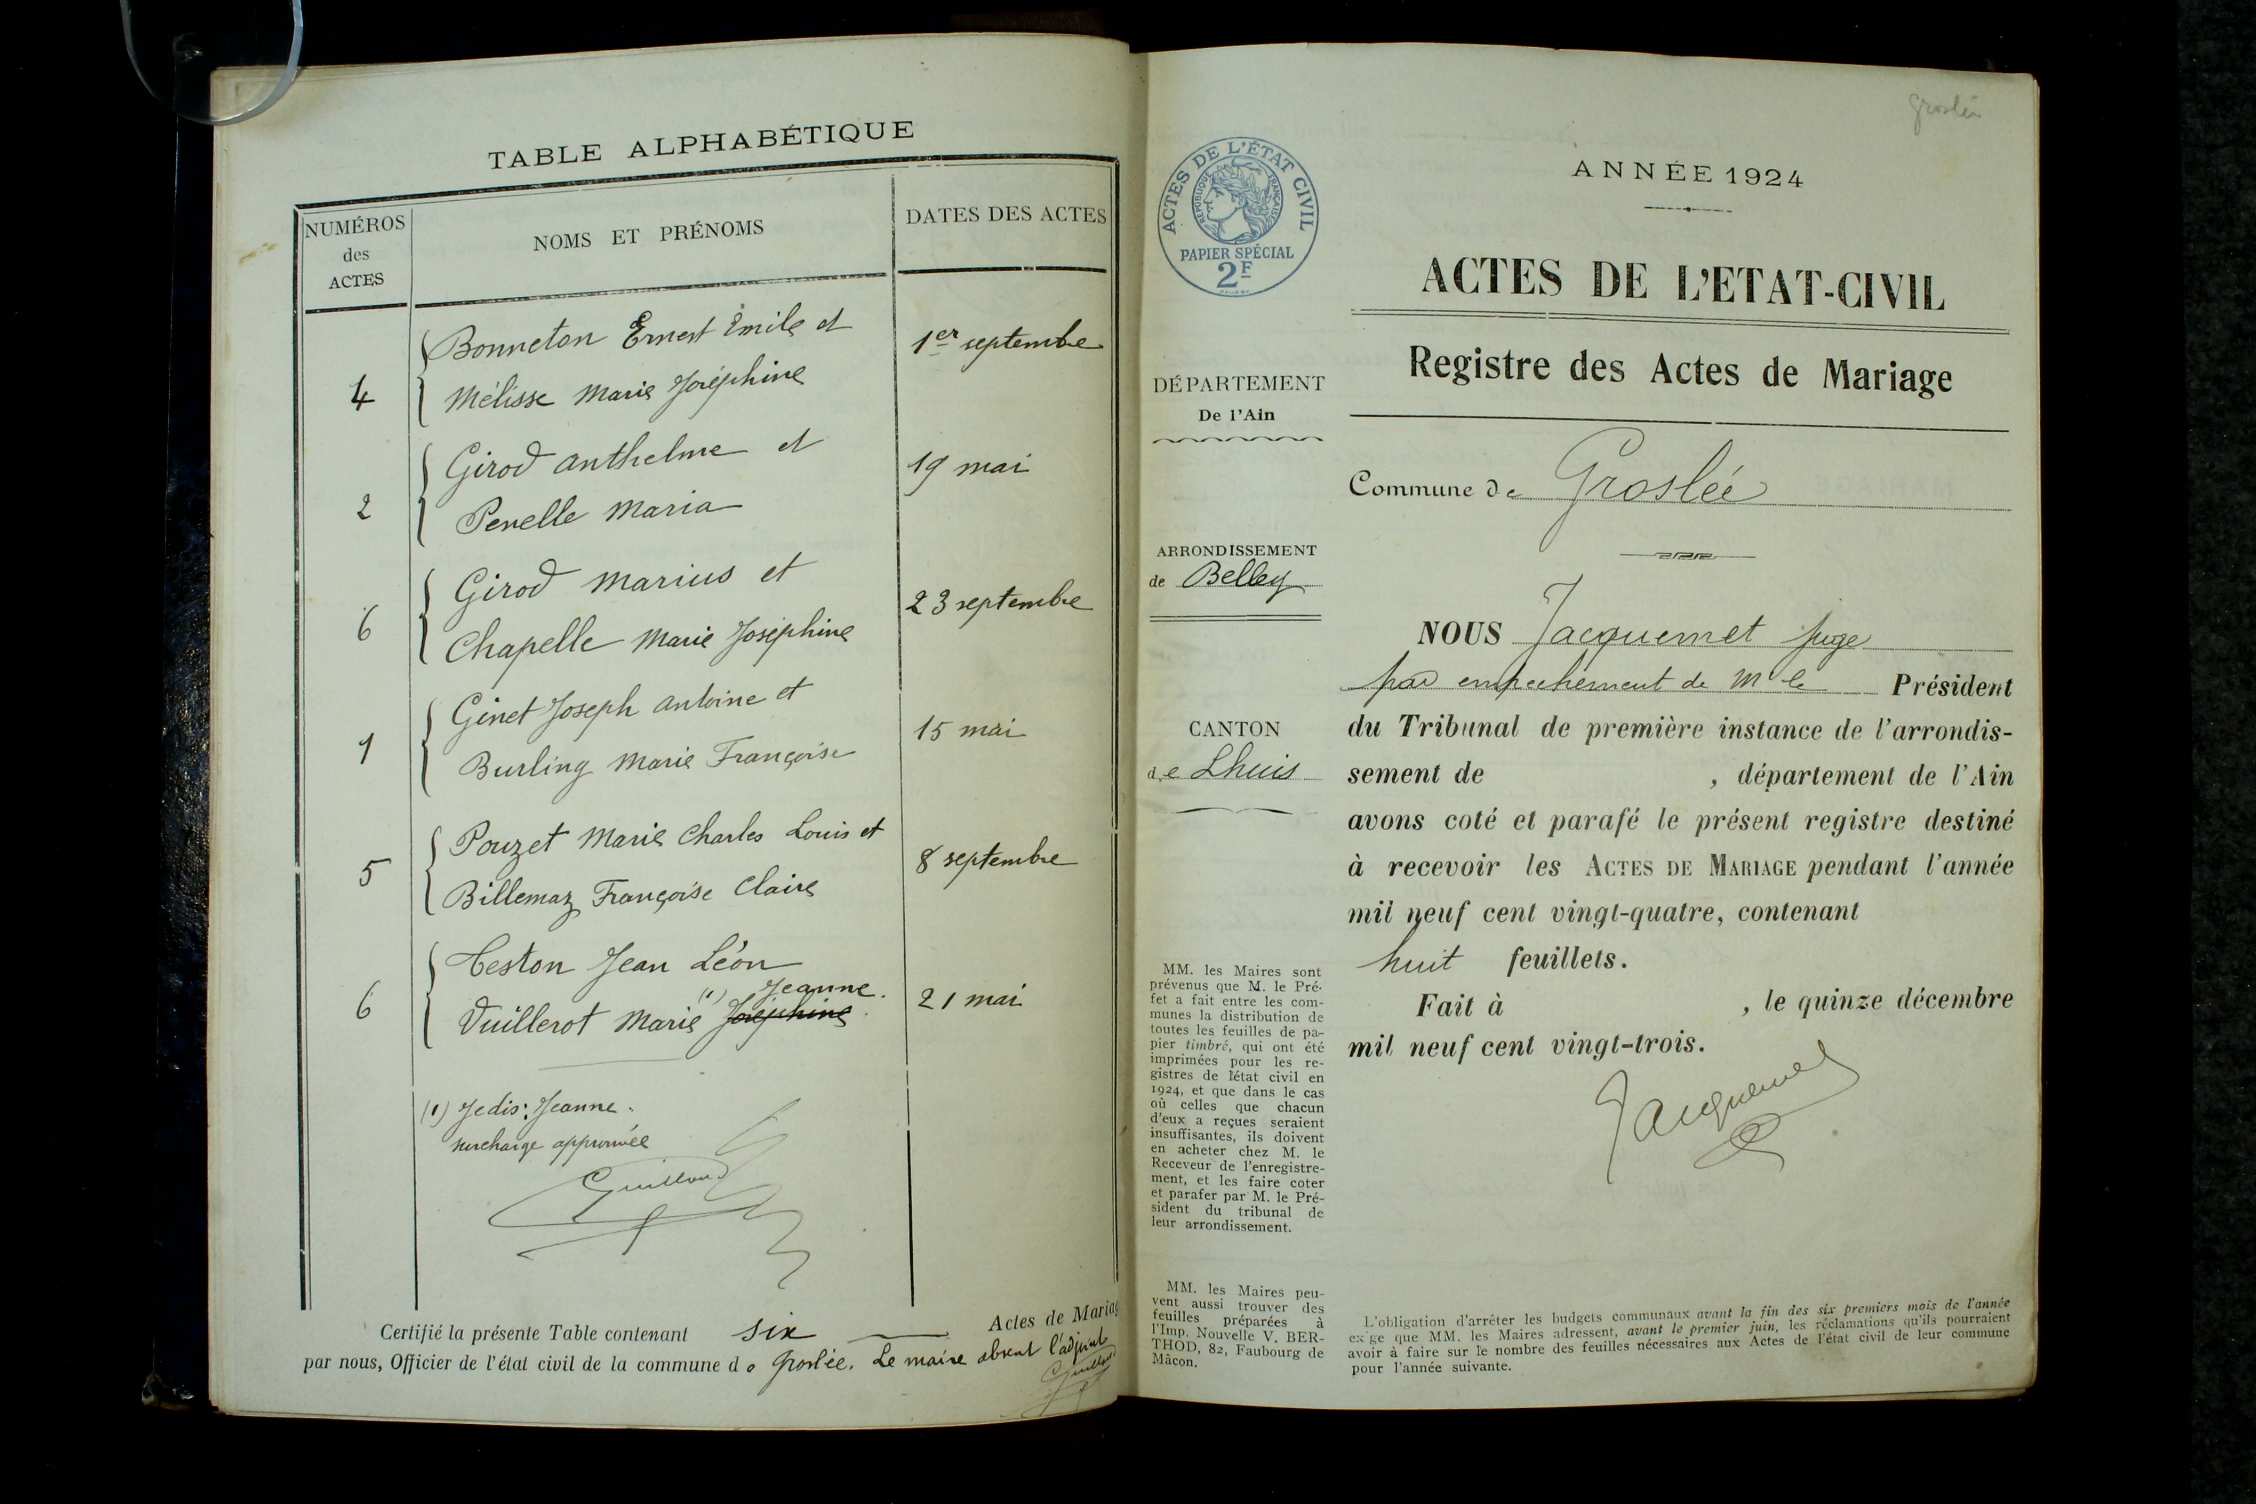 TABLE ALPHABÉTIQUE
NUMÉROS
des
ACTES
NOMS ET PRÉNOMS
DATES DES ACTES
Bonneton Ernest Émile et
1er septembre
4
Mélisse Marie Joséphine
Girod Anthelme et
19 mai
2
Penelle Maria
Girod Marius et
23 septembre
6
Chapelle Marie Joséphine
Ginet Joseph Antoine et
15 mai
1
Burling Marie Françoise
Pouzet Marie Charles Louis et
8 septembre
5
Billemaz Françoise Claire
Teston Jean Léon
Jeanne.
6
Vuillerot Marie (1) Joséphine
21 mai
(1) Jedis: Jeanne.
surcharge approuvée
Guilloud
Certifié la présente Table contenant six Actes de Mariag
par nous, Officier de l'état civil de la commune de Groslée. Le maire absent l'adjoint
Guilloud
Groslée
ANNÉE 1924
ACTES DE L'ÉTAT CIVIL
RÉPUBLIQUE FRANÇAISE
PAPIER SPÉCIAL
2F
ACTES DE L'ETAT-CIVIL
Registre des Actes de Mariage
DÉPARTEMENT
De l'Ain
Commune de Groslée
ARRONDISSEMENT
de Belley
CANTON
de Lhuis
NOUS Jacquemet juge
par empêchement de M le Président
du Tribunal de première instance de l'arrondis-
sement de , département de l'Ain
avons coté et parafé le présent registre destiné
à recevoir les ACTES DE MARIAGE pendant l'année
mil neuf cent vingt-quatre, contenant
huit feuillets.
Fait à , le quinze décembre
mil neuf cent vingt-trois.
Jacquemet
MM. les Maires sont
prévenus que M. le Pré-
fet a fait entre les com-
munes la distribution de
toutes les feuilles de pa-
pier timbré, qui ont été
imprimées pour les re-
gistres de l'état civil en
1924, et que dans le cas
où celles que chacun
d'eux a reçues seraient
insuffisantes, ils doivent
en acheter chez M. le
Receveur de l'enregistre-
ment, et les faire coter
et parafer par M. le Pré-
sident du tribunal de
leur arrondissement.
MM. les Maires peu-
vent aussi trouver des
feuilles préparées à
l'Imp. Nouvelle V. BER-
THOD, 82, Faubourg de
Mâcon.
L'obligation d'arrêter les budgets communaux avant la fin des six premiers mois de l'année
exige que MM. les Maires adressent, avant le premier juin, les réclamations qu'ils pourraient
avoir à faire sur le nombre des feuilles nécessaires aux Actes de l'état civil de leur commune
pour l'année suivante.